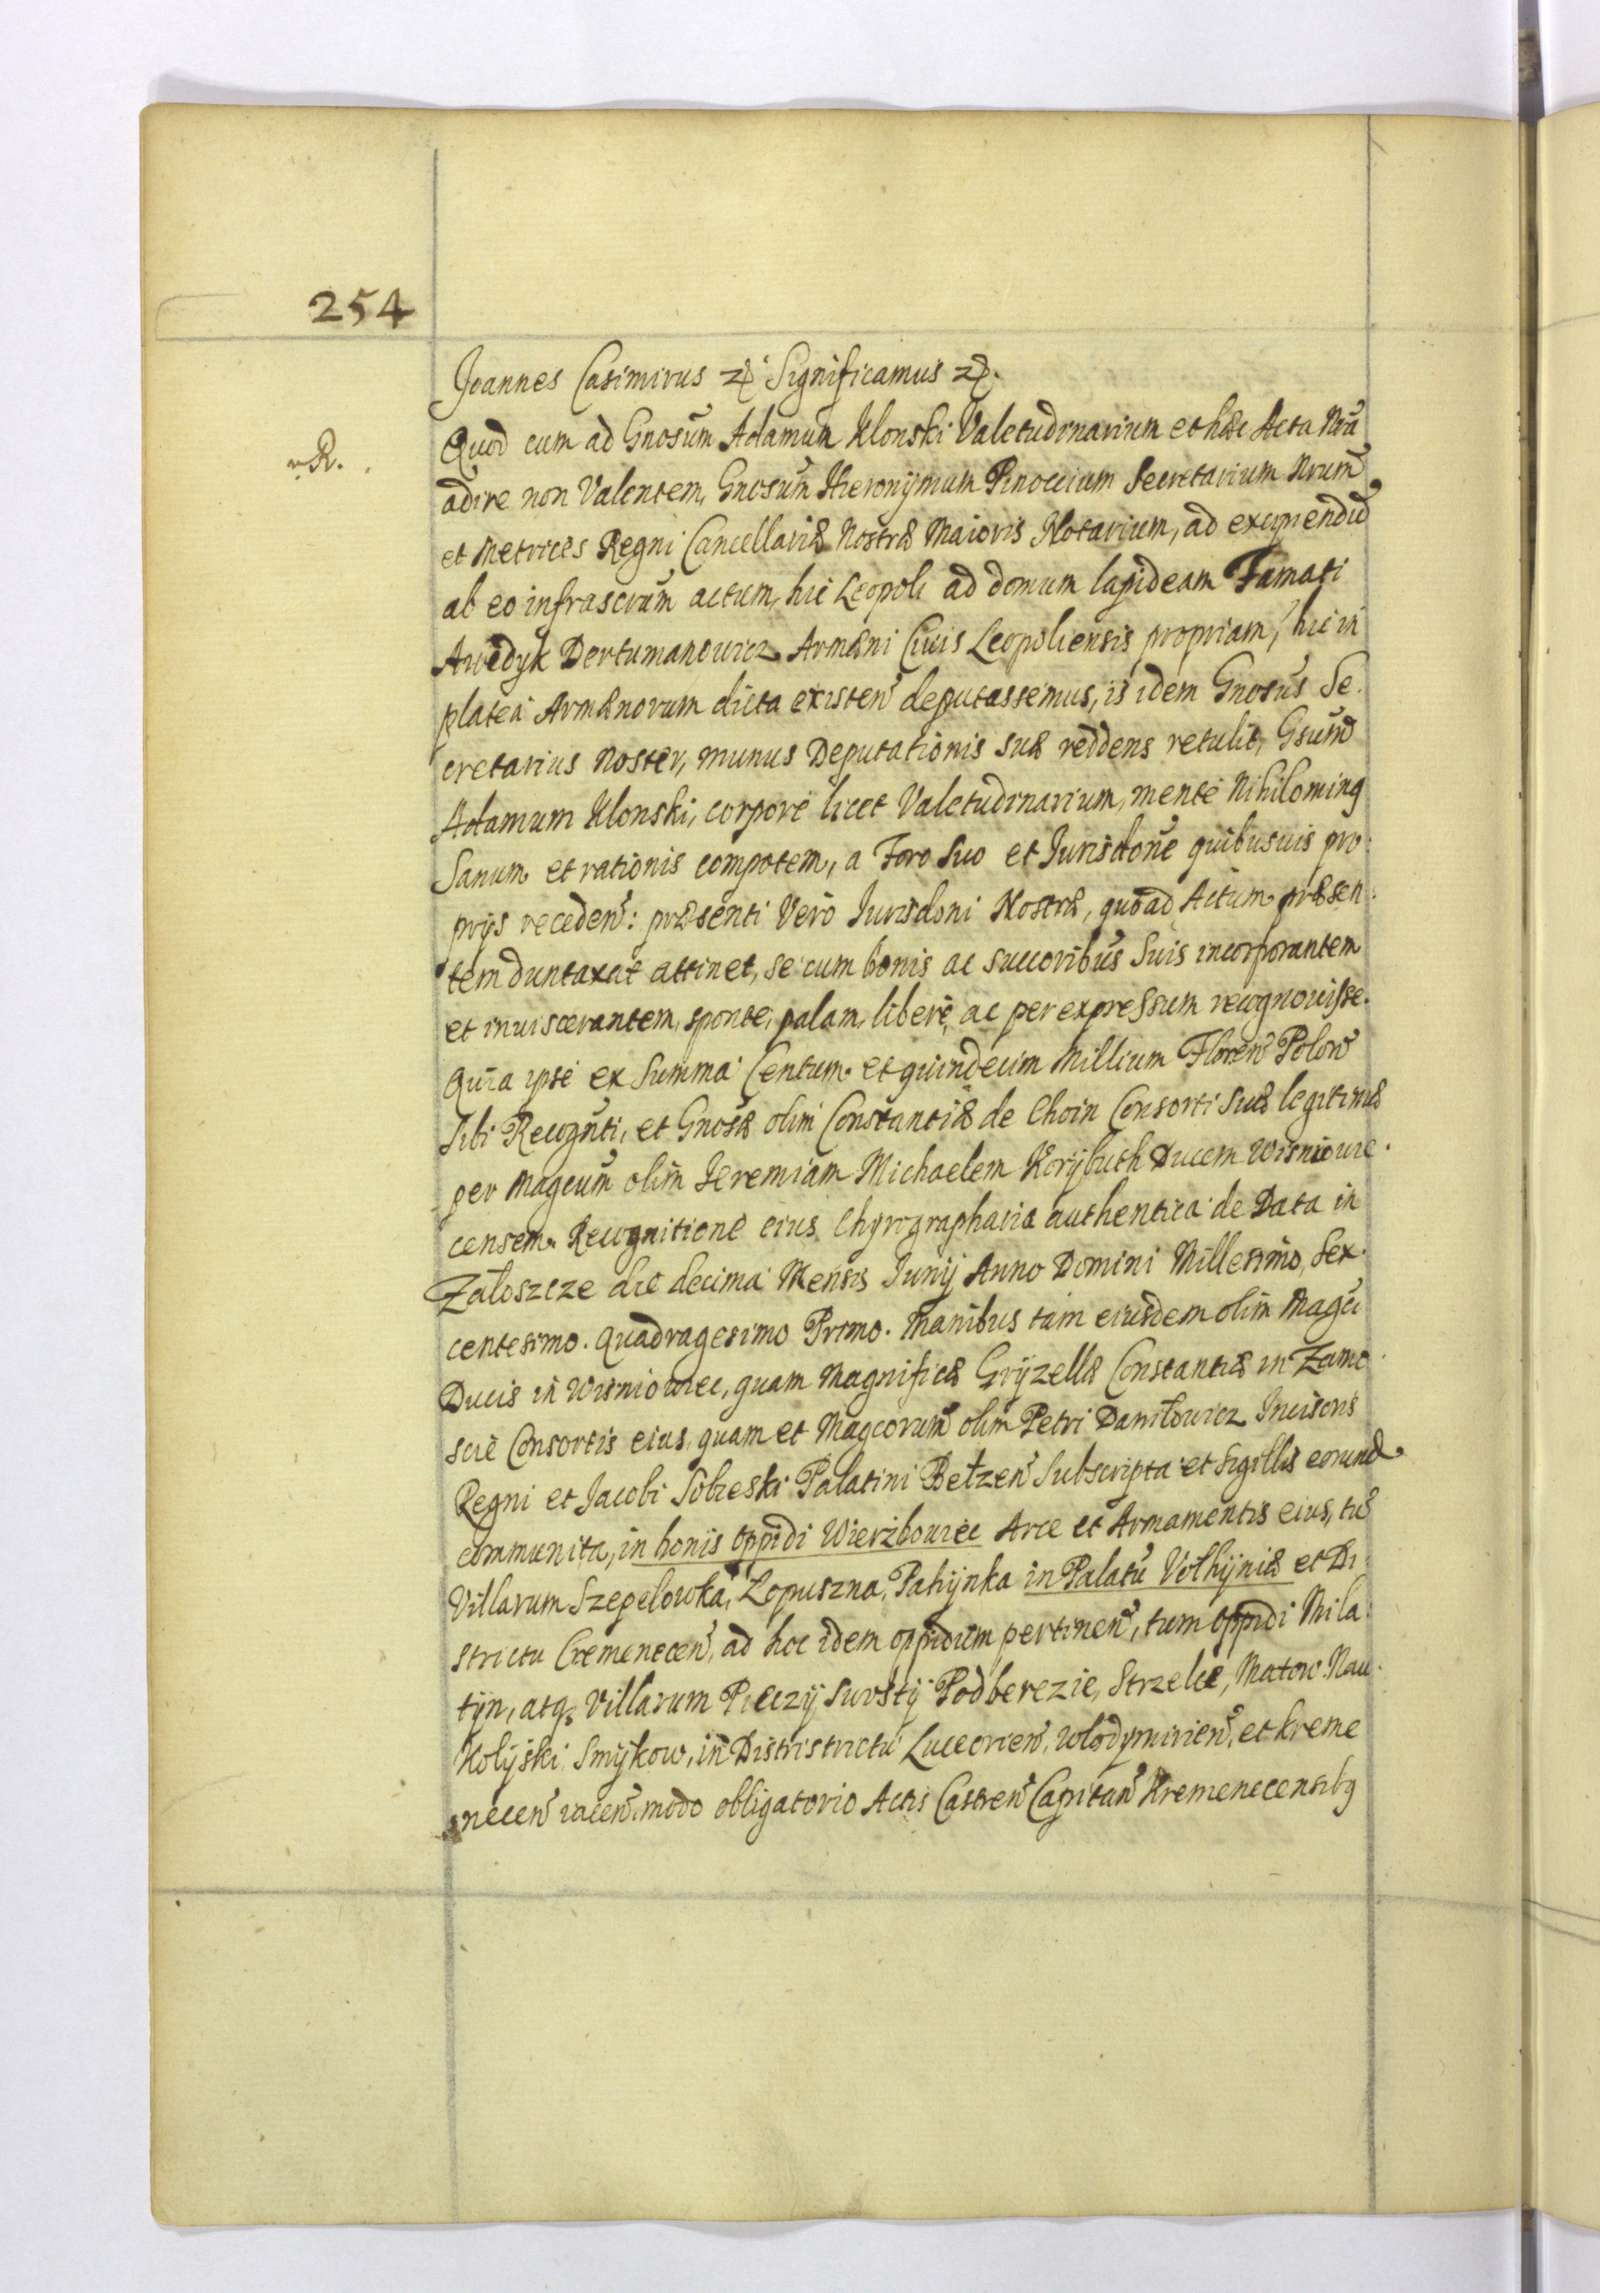 254
Joannes Casimirus etc. Significamus etc.
R.
Quod cum ad Gnosum Adamum Klonski Valetudinarium et hæc Acta Nra
adire non Valentem, Gnosum Hieronymum Pinoccium Secretarium Nrum
et Metrices Regni Cancellariæ Nostræ Maioris Notarium, ad excipiendū
ab eo infrascrum actum, hic Leopoli ad domum lapideam Famati
Awedyk Dertumanowicz Armæni Civis Leopoliensis propriam, hic in
platea Armænorum dicta existen deputassemus, is idem Gnosus Se.
cretarius Noster, munus Deputationis suæ reddens retulit, Gsum
Adamum Klonski, corpore licet Valetudinarium, mente Nihiloming
Sanum et rationis compotem, a Foro Suo et Jurisdone quibusvis pro:
prijs receden: præsenti Vero Jurisdoni Nostræ, quo ad Actum præsen:
tem duntaxat attinet, se cum bonis ac succoribus Suis incorporantem
et inviscerantem, sponte, palam, libere, ac per expressum recognovisse.
Quia ipse ex Summa Centum et quindecim Millium Floren Polow
sibi Recognti, et Gnosæ olim Constantiæ de Choin Consorti suæ legitimæ
per Magcum olim Jeremiam Michaelem Korÿbuth Ducem Wisniowie.
censem Recognitione eius Chyrographaria authentica de Data in
Załoszcze die decima Mensis Junij Anno Domini Millesimo, Sex.
centesimo. Quadragesimo Primo. Manibus tam eiusdem olim Magci
Ducis in Wisniowiec, quam Magnificæ Grÿzellæ Constantiæ in Zamo
scie Consortis eius, quam et Magcorum olim Petri Daniłowicz Incisoris
Regni et Jacobi Sobieski Palatini Bełzen Subscripta et Sigillis eorund
communita, in bonis oppidi Wierzbowiec Arce et Armamentis eius, tū
Villarum Szepelowka, Lopuszna, Pahÿnka in Palatu Vołhÿniæ et Di:
strictu Cremenecen, ad hoc idem oppidum pertinen, tum oppidi Mila:
tÿn, atq Villarum Pieczÿ Podberezie, Strzelce, Matow Nau:
Kolÿski Smÿkow, in Distristrictu Luceorien, Wlodymirien, et kreme
necen iacen modo obligatorio Actis Castren Capitan Kremenecensibg